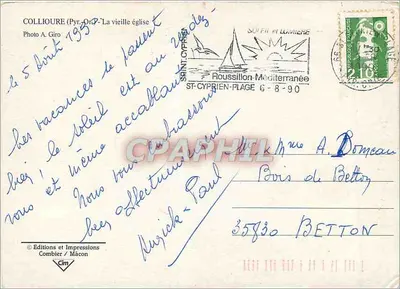 COLLIOURE (Pyr.-Or.) - La vieille église
Photo A. Giro
le 5 Août 1990
Les vacances se passent
bien ! le soleil est au rendez
vous et même accablant
Nous vous embrassons
bien affectueusement
Paul
SAINT CYPRIEN
SOLEIL ET LUMIERE
Roussillon-Méditerranée
ST-CYPRIEN-PLAGE 6-8-90
2,10
CPAPHIL
M. Mme A.
Bois de Betton
35830 BETTON
© Editions et Impressions
Combier / Mâcon
Cim